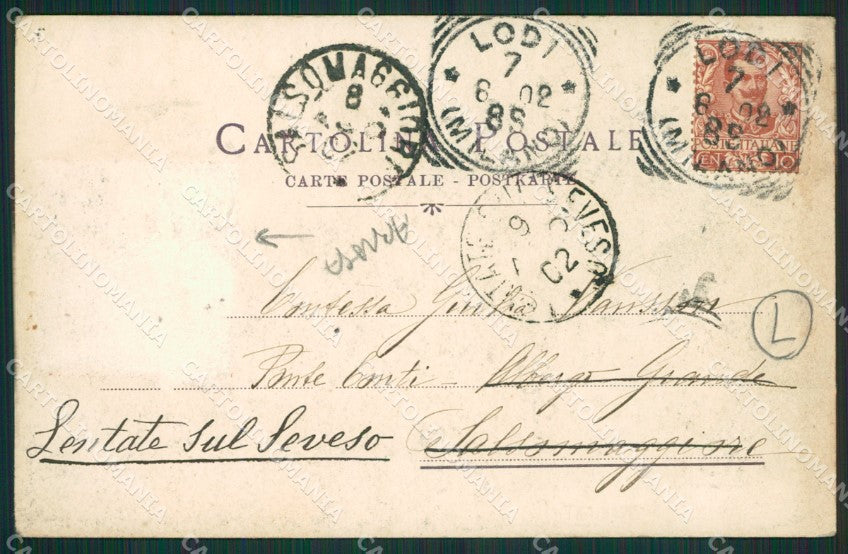 LODI
7
6 02
8S
(MILANO)
LODI
7
6 02
8S
(MILANO)
SALSOMAGGIORE
8
CARTOLINA POSTALE
CARTE POSTALE - POSTKARTE
LENTATE SUL SEVESO
9
02
Contessa Giulia
Ponte Conti - Albergo Grande
Lentate sul Seveso
Salsomaggiore
L
CARTOLINOMANIA